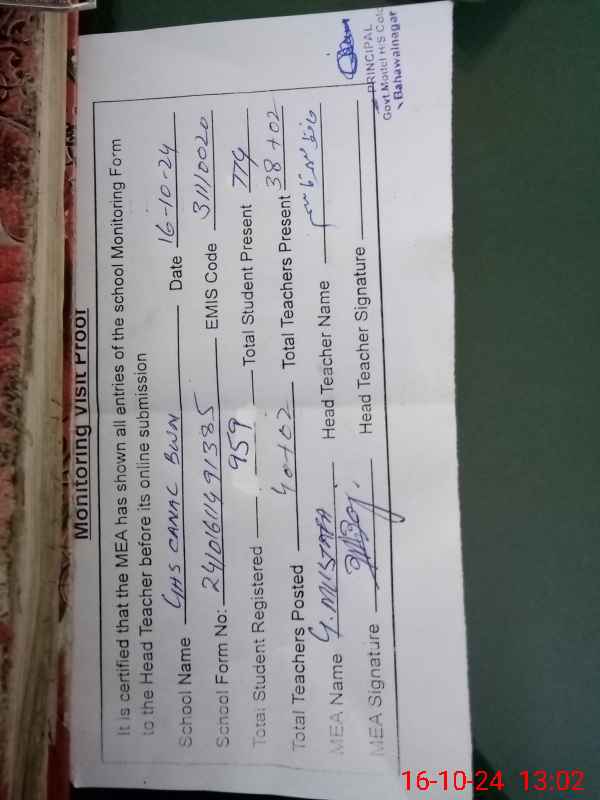 Monitoring Visit Proof
It is certified that the MEA has shown all entries of the school Monitoring Form
to the Head Teacher before its online submission
School Name GHS CANAL BWN Date 16-10-24
School Form No: 2401611491385 EMIS Code 31110020
Total Student Registered 959 Total Student Present 779
Total Teachers Posted 40+02 Total Teachers Present 38+02
MEA Name G. MUSTAFA Head Teacher Name
MEA Signature Head Teacher Signature
PRINCIPAL
Govt Model H/S
Bahawalnagar
16-10-24 13:02